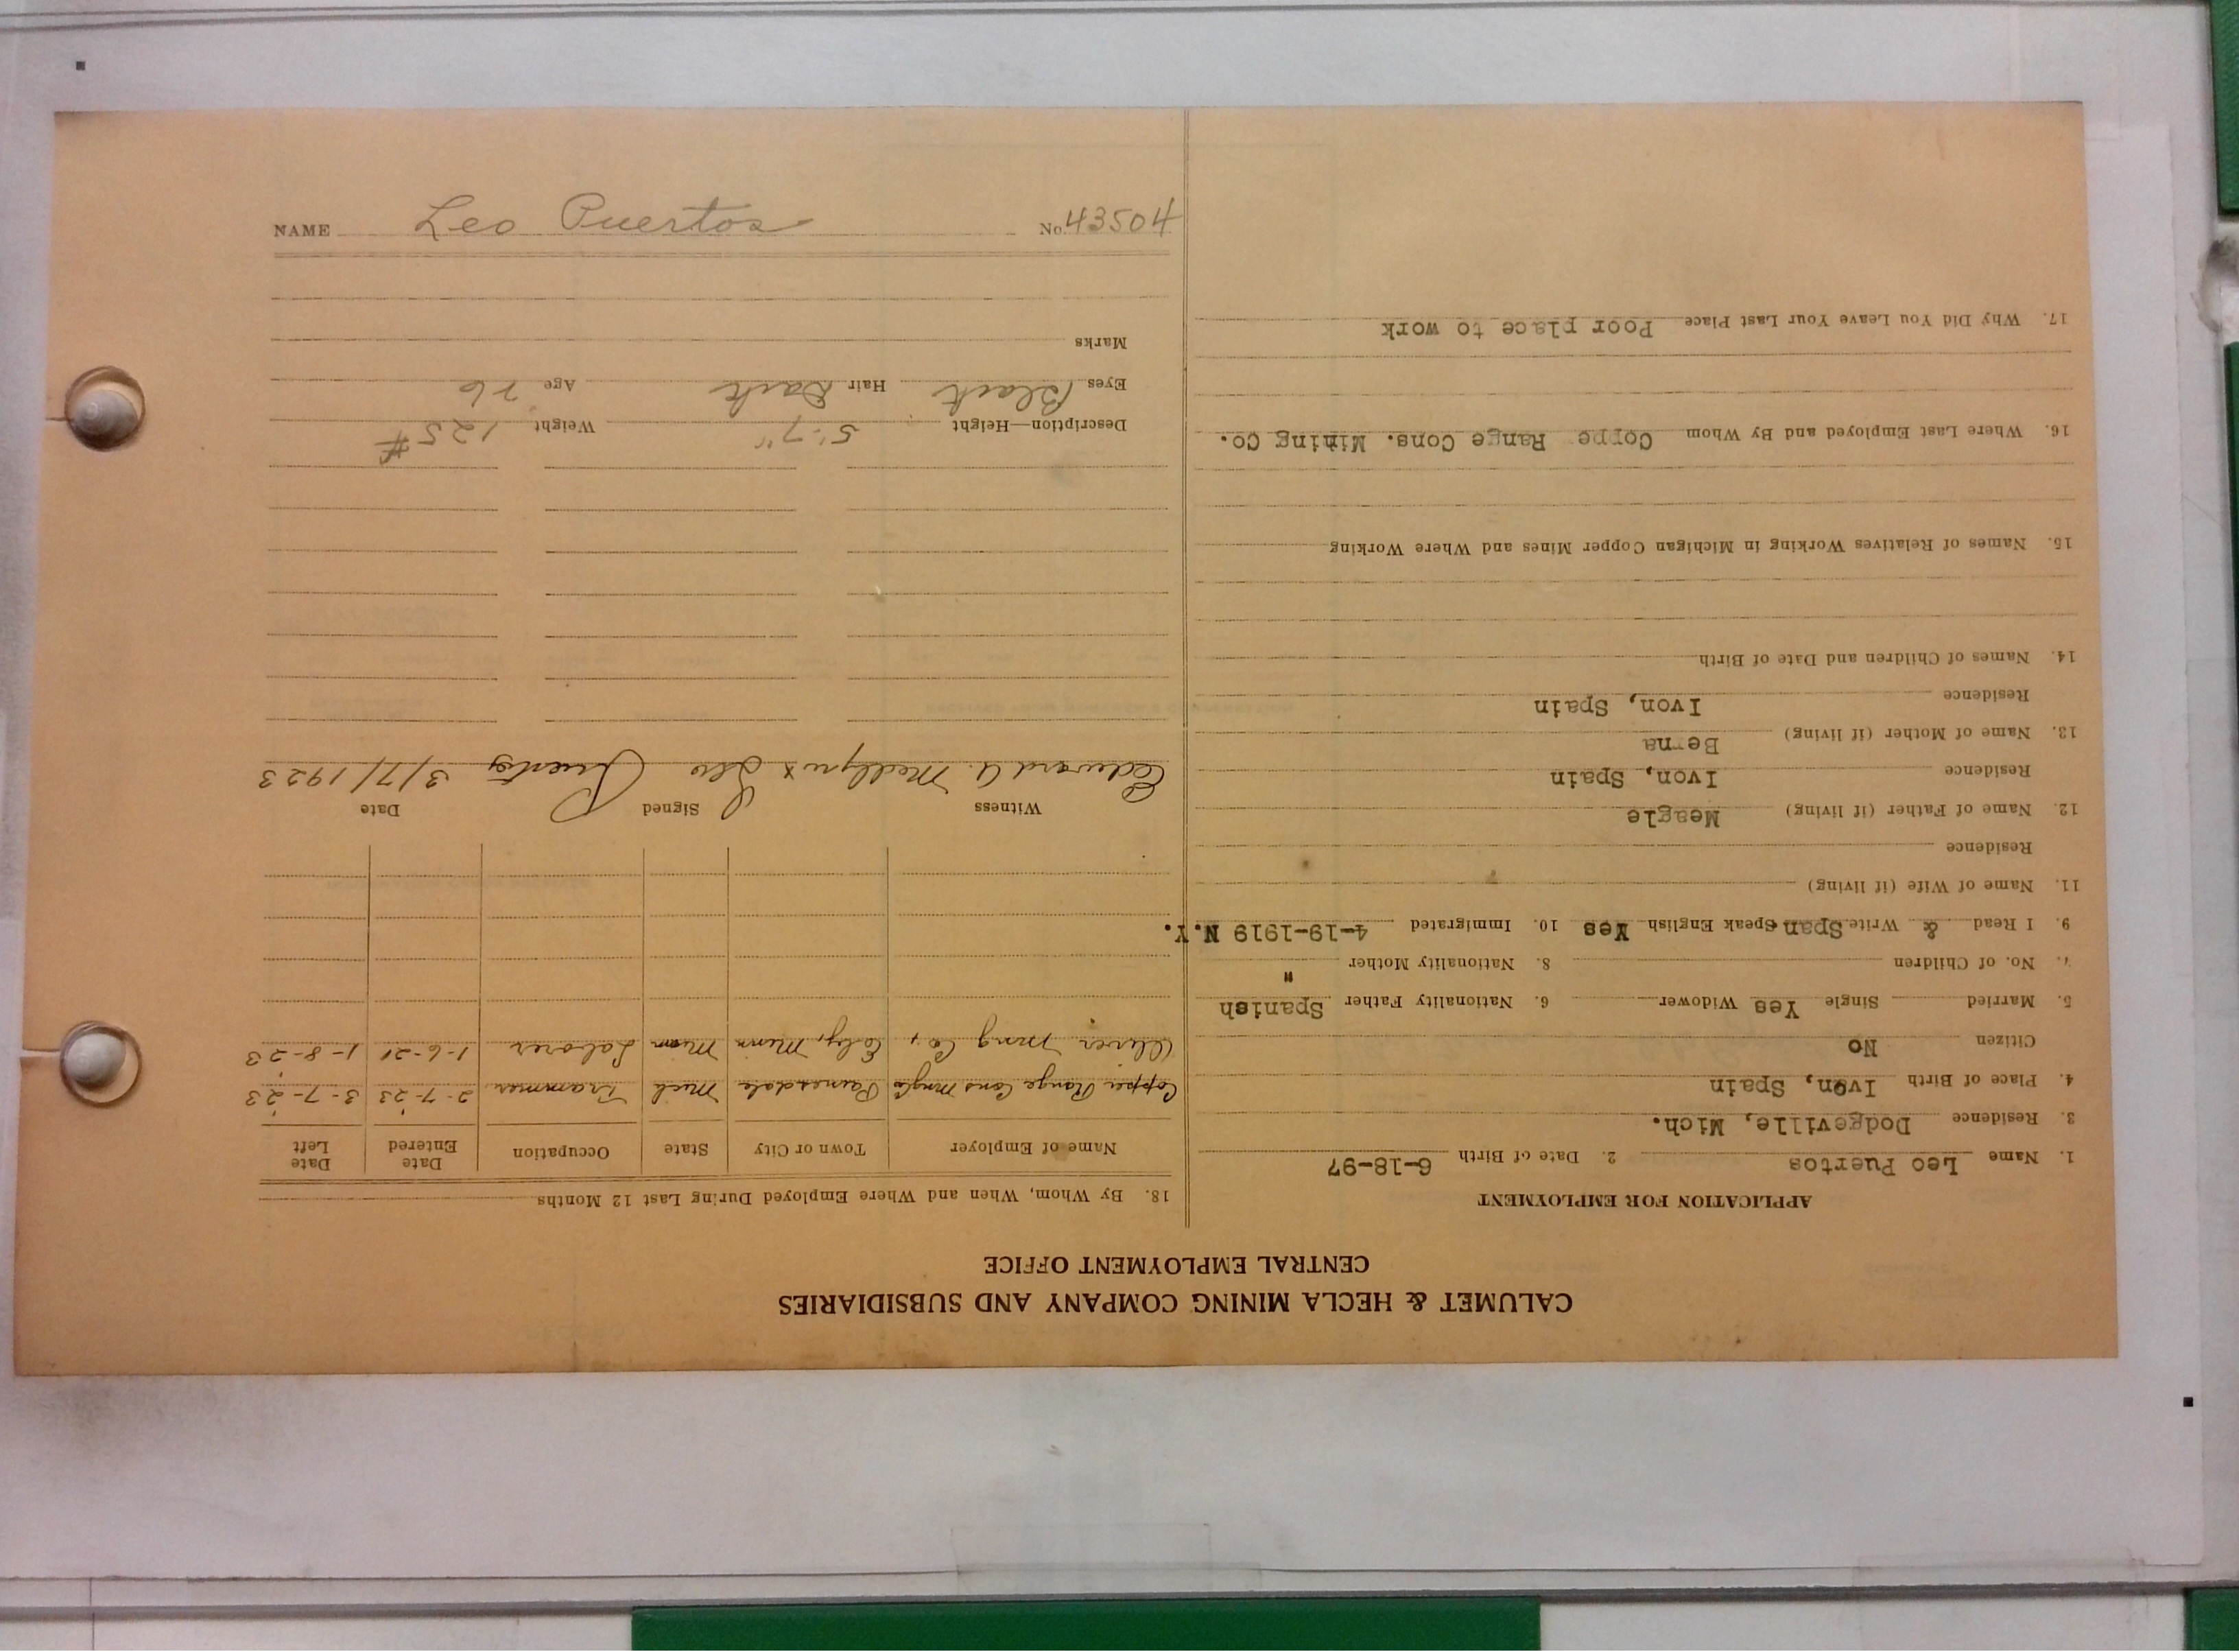 CALUMET & HECLA MINING COMPANY AND SUBSIDIARIES
CENTRAL EMPLOYMENT OFFICE
APPLICATION FOR EMPLOYMENT
1. Name Leo Puertos 2. Date of Birth 6-18-97
3. Residence Dodgeville, Mich.
4. Place of Birth Ivon, Spain
Citizen No
5. Married Single Yes Widower 6. Nationality Father Spanish
7. No. of Children 8. Nationality Mother "
9. I Read & Write Span Speak English Yes 10. Immigrated 4-19-1919 N.Y.
11. Name of Wife (if living)
Residence
12. Name of Father (if living) Meagle
Residence Ivon, Spain
13. Name of Mother (if living) Berna
Residence Ivon, Spain
14. Names of Children and Date of Birth
15. Names of Relatives Working in Michigan Copper Mines and Where Working
16. Where Last Employed and By Whom Coppe Range Cons. Mining Co.
17. Why Did You Leave Your Last Place Poor place to work
18. By Whom, When and Where Employed During Last 12 Months
Name of Employer Town or City State Occupation Date Entered Date Left
Copper Range Cons Mng Co Painesdale Mich Trammer 2-7-23 3-7-23
Oliver Mng Co, Ely, Minn Minn Laborer 1-6-21 1-8-23
Witness Signed Date
Edward A. Medlyn x Leo Puertos 3/7/1923
Description—Height 5'-7" Weight 125#
Eyes Black Hair Dark Age 26
Marks
NAME Leo Puertos No. 43504